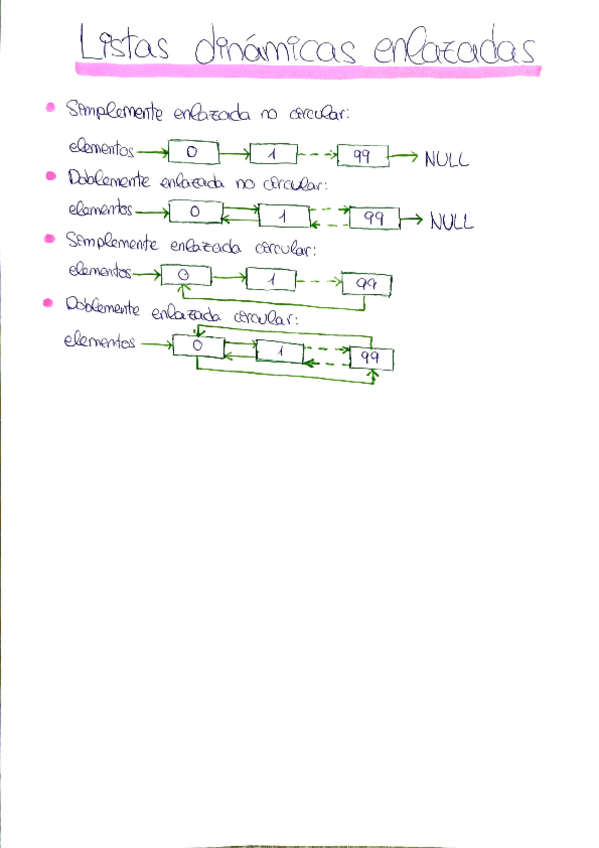 Listas dinámicas enlazadas
Simplemente enlazada no circular:
elementos 0 1 99 NULL
Doblemente enlazada no circular:
elementos 0 1 99 NULL
Simplemente enlazada circular:
elementos 0 1 99
Doblemente enlazada circular:
elementos 0 1 99